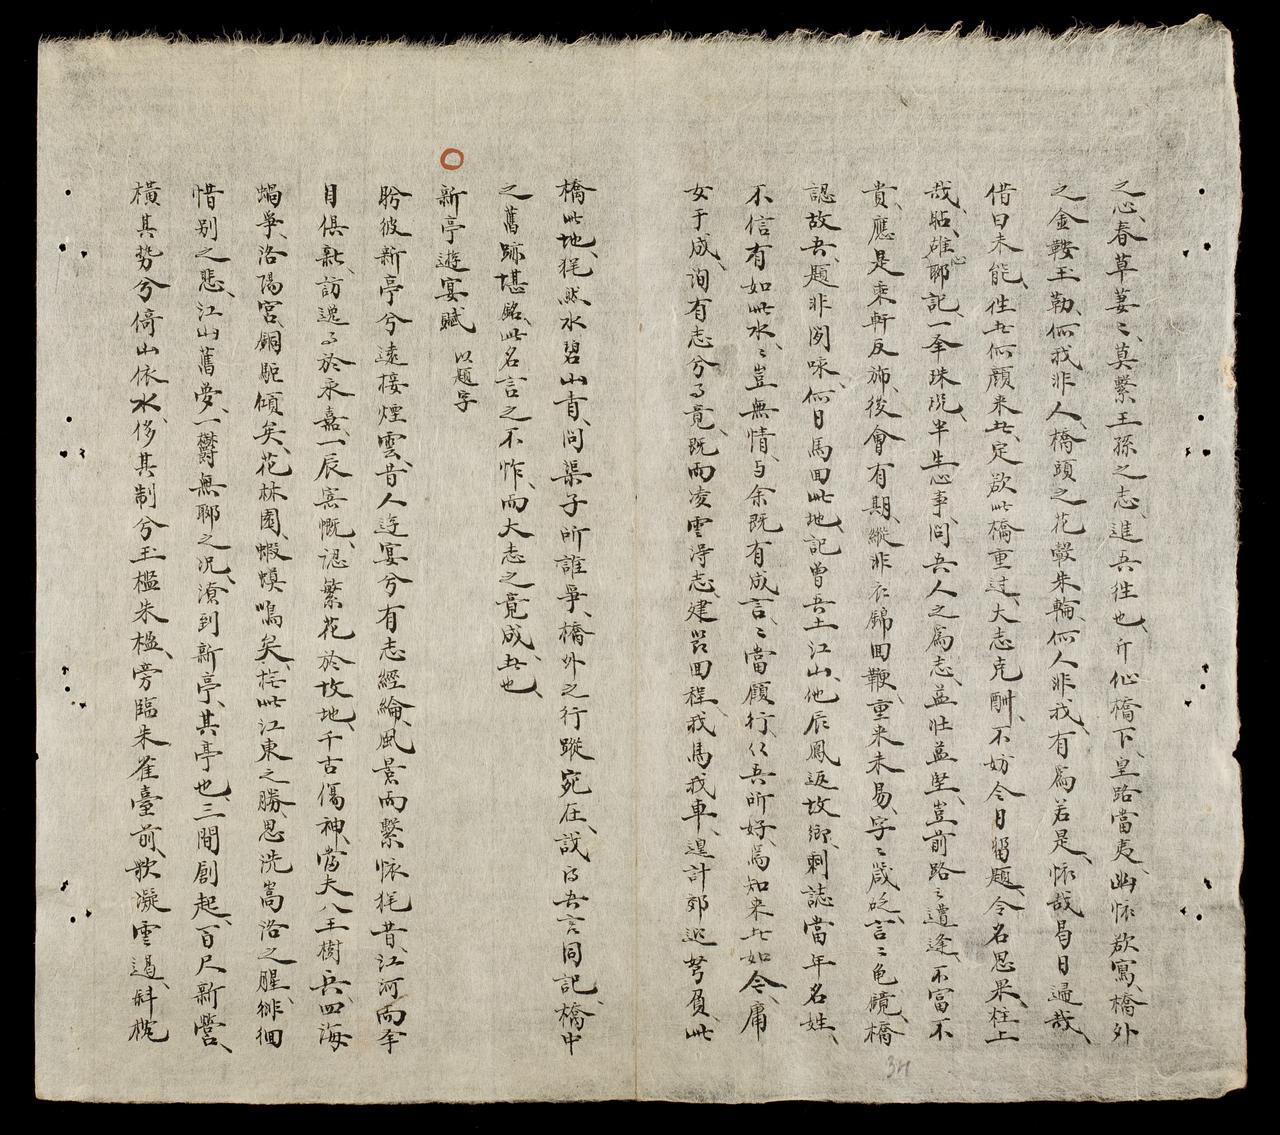 之心春草萋〻莫繫王孫之志進吾往也斤仙橋下皇路當夷幽怀欲寫橋外
之金鞍玉勒何我非人橋頭之花轂朱輪何人非我有爲若是怀哉曷日過哉
借曰未能往此何顏來此定欲此橋重过大志克酬不妨今日留題令名思果柱上
哉雄心聊記一奉珠玑半生心事問吾人之爲志益壯益堅豈前路〻遭逢不富不
貴應是乘軒反斾後會有期縱非衣錦回鞭重來未易字〻箴砭言〻龜鏡橋
認故吾題非閑咏何日馬回此地記曾吾土江山他辰鳳返故鄉剩誌當年名姓
不信有如此水〻豈無情与余既有成言〻當顧行從吾所好焉知來此如今庸
女于成詢有志兮事竟既而凌雲得志建召回程我馬我車遑計郊迎弩負此
橋此地犹然水碧山青問渠子所誰爭橋外之行蹤宛在哉为吾言同記橋中
之舊跡堪銘此名言之不怍而大志之竟成此也
新亭遊宴賦 以題字
盼彼新亭兮遠接煙雲昔人遊宴兮有志經綸風景而繫怀犹昔江河而舉
目俱新訪逸事於永嘉一辰寄慨認繁花於故地千古傷神當夫八王樹兵四海
蝸爭洛陽宮銅駝傾矣花林園蝦蟆鳴矣惟此江東之勝思洗嵩洛之腥徘徊
惜别之悲江山舊夢一欝無聊之况凉到新亭其亭也三間創起百尺新營
橫其勢兮倚山依水侈其制兮玉檻朱楹旁臨朱雀臺前歌凝雲遏斜枕
34